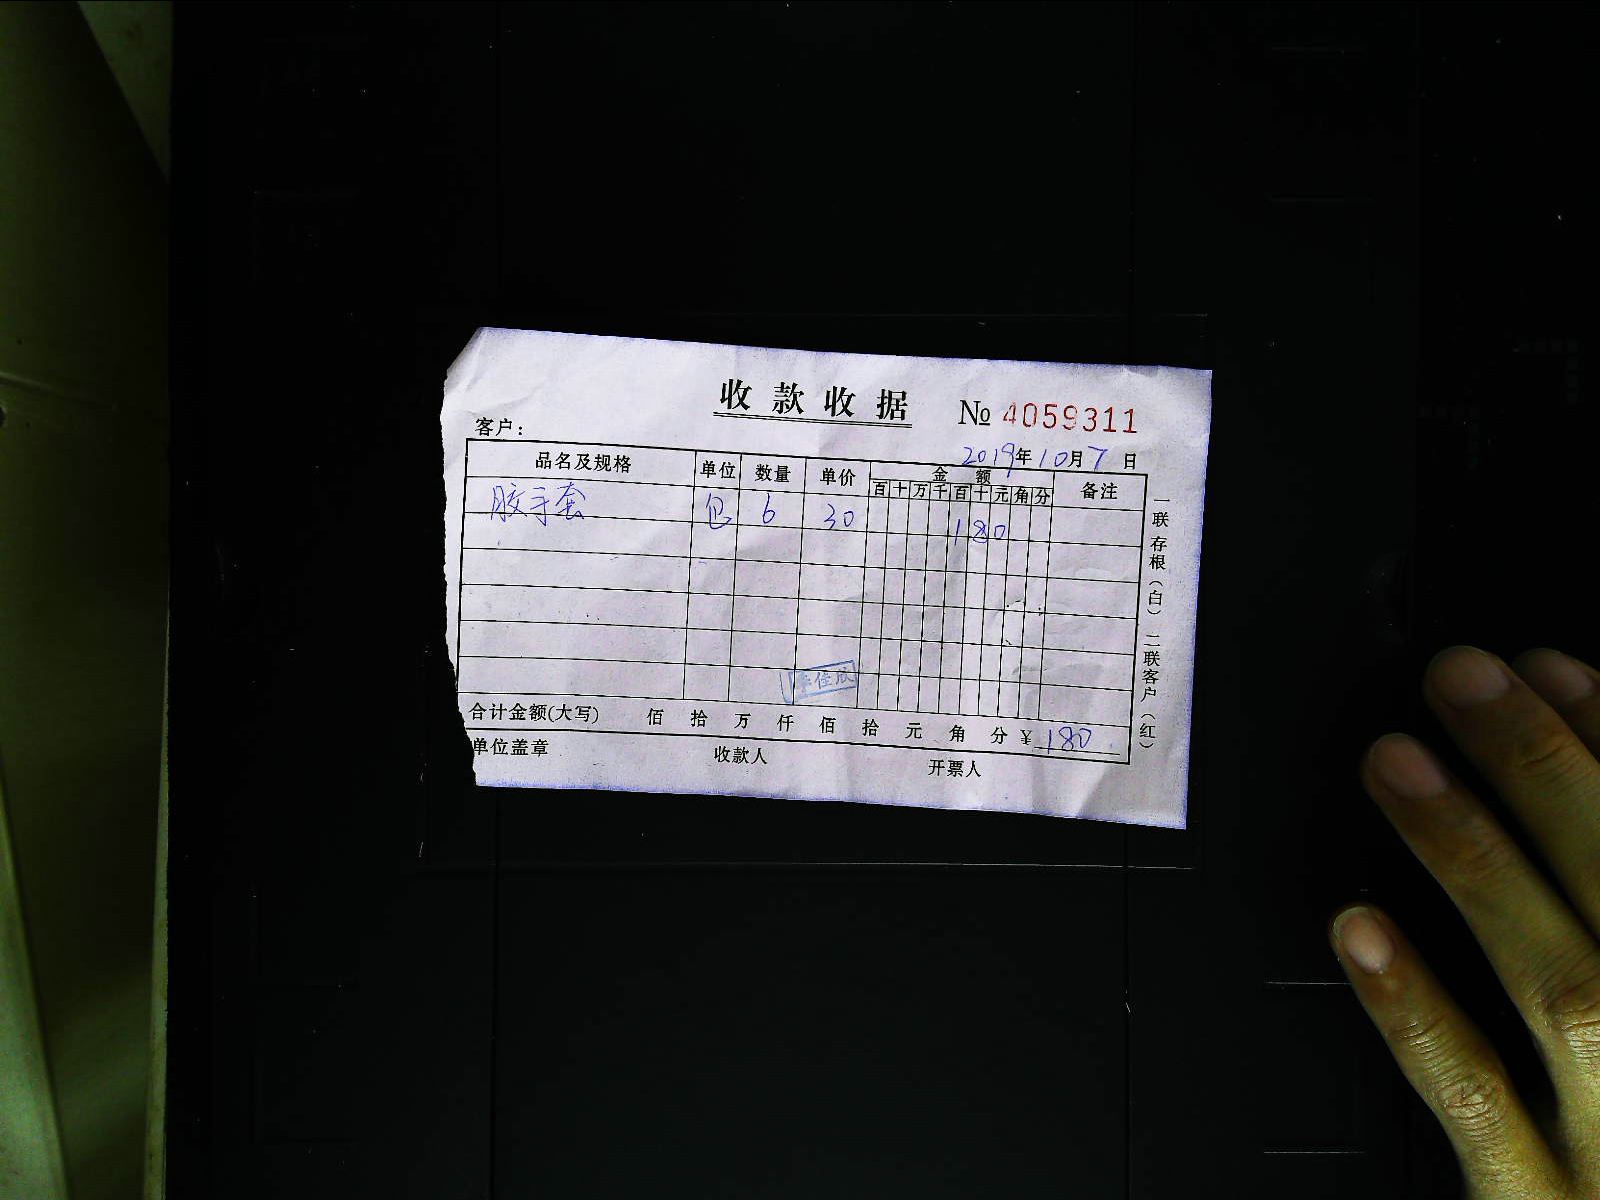 收款收据
№ 4059311
客户：
2019年10月7日
品名及规格 单位 数量 单价 金额 备注
百 十 万 千 百 十 元 角 分
胶手套 包 6 30 180
合计金额(大写) 佰 拾 万 仟 佰 拾 元 角 分 ¥ 180
单位盖章 收款人 开票人
一联存根（白） 二联客户（红）